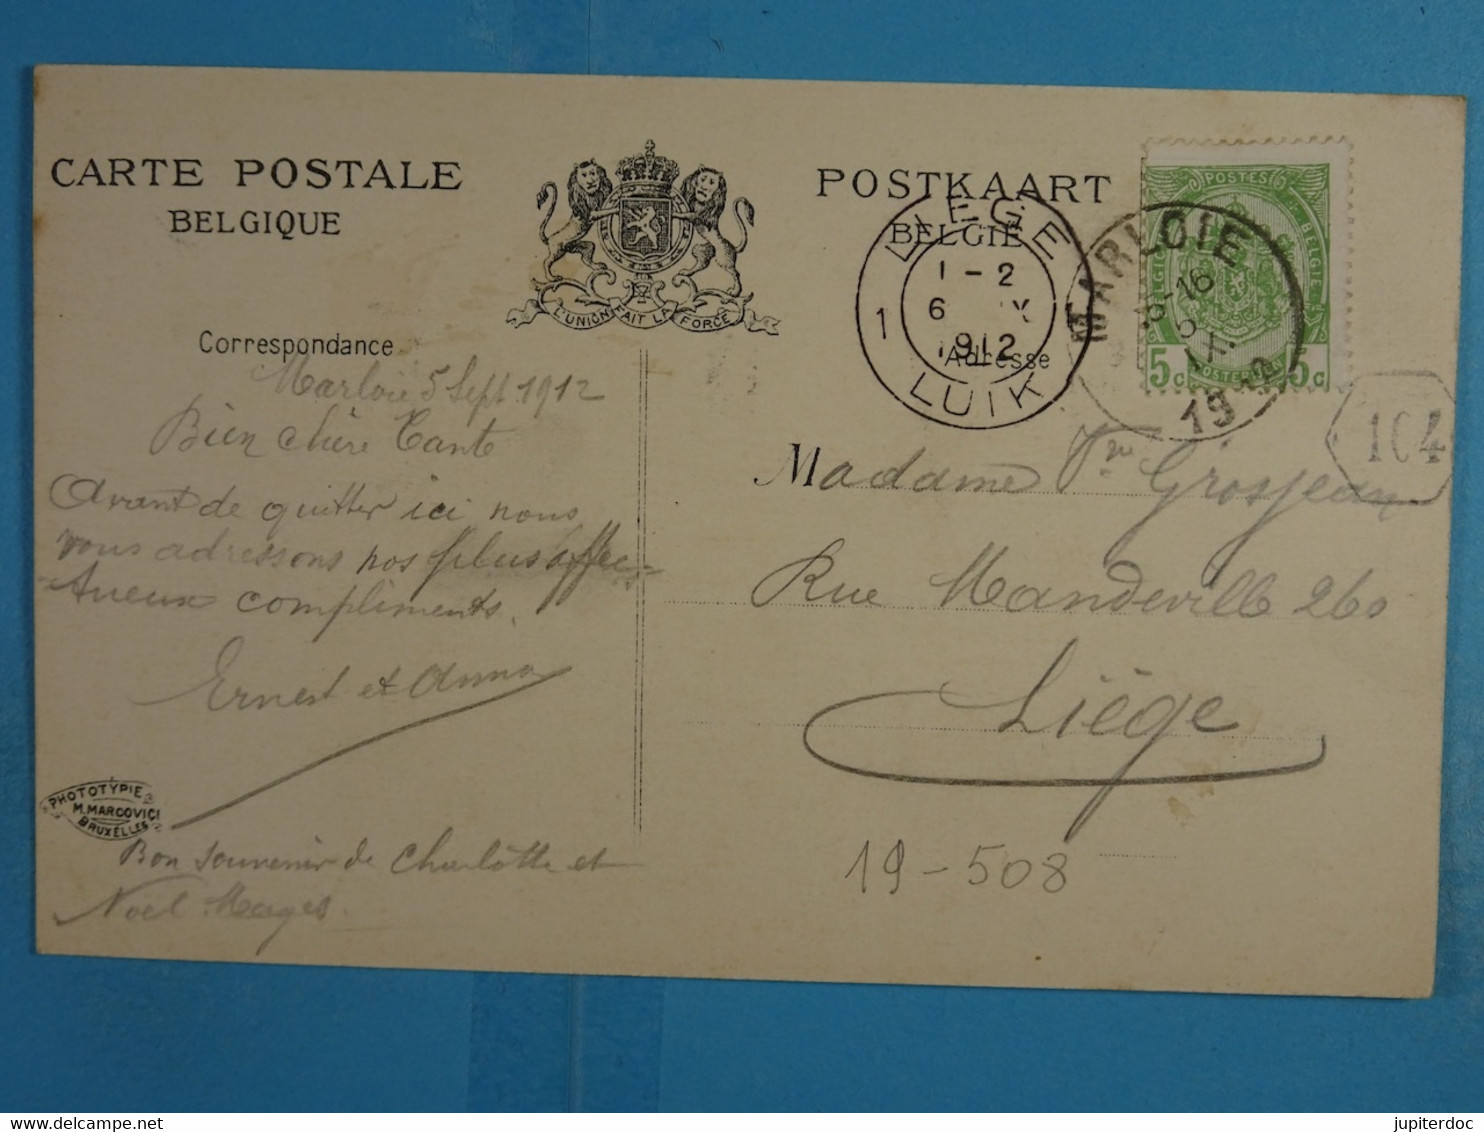 CARTE POSTALE
BELGIQUE
L'UNION FAIT LA FORCE
POSTKAART
BELGIË
LIEGE
1-2
6 IX
1912
1
LUIK
MARLOIE
-16
5
IX.
19
POSTES
BELGIQUE BELGIE
5c POSTERIJEN 5c
104
Correspondance
Adresse
Marloie 5 Sept. 1912
Bien chère Tante
Avant de quitter ici nous
vous adressons nos plus affec-
tueux compliments.
Ernest et Anna
Bon souvenir de Charlotte et
Noël Mages.
Madame Vve Grosjean
Rue Mandeville 260
Liège
19-508
PHOTOTYPIE
M. MARCOVICI
BRUXELLES
jupiterdoc